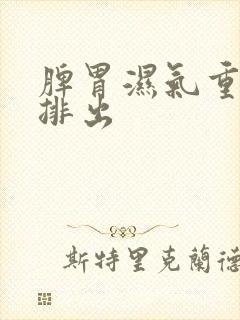 脾胃濕氣重
排出
斯特里克蘭德